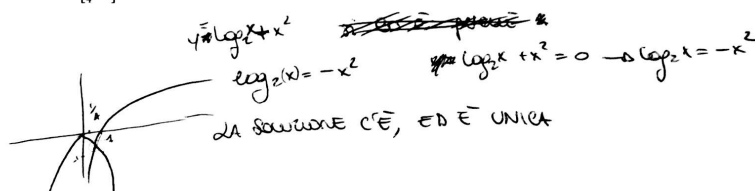 y = log₂x + x²
log₂(x) = -x²
log₂x + x² = 0 → log₂x = -x²
LA SOLUZIONE C'È, ED È UNICA
1